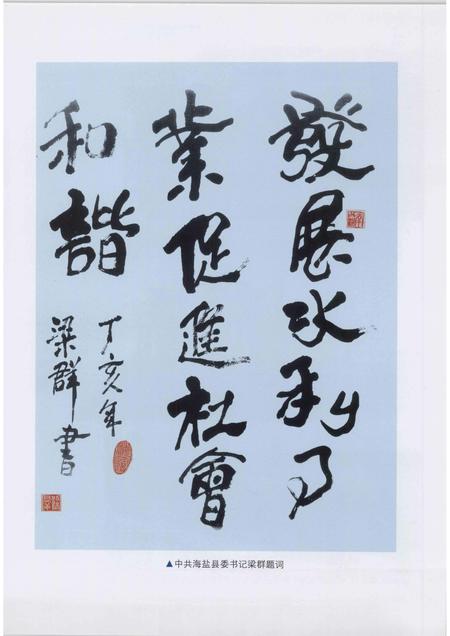 發展水利事
業促進社會
和諧
丁亥年
梁群書
▲中共海盐县委书记梁群题词